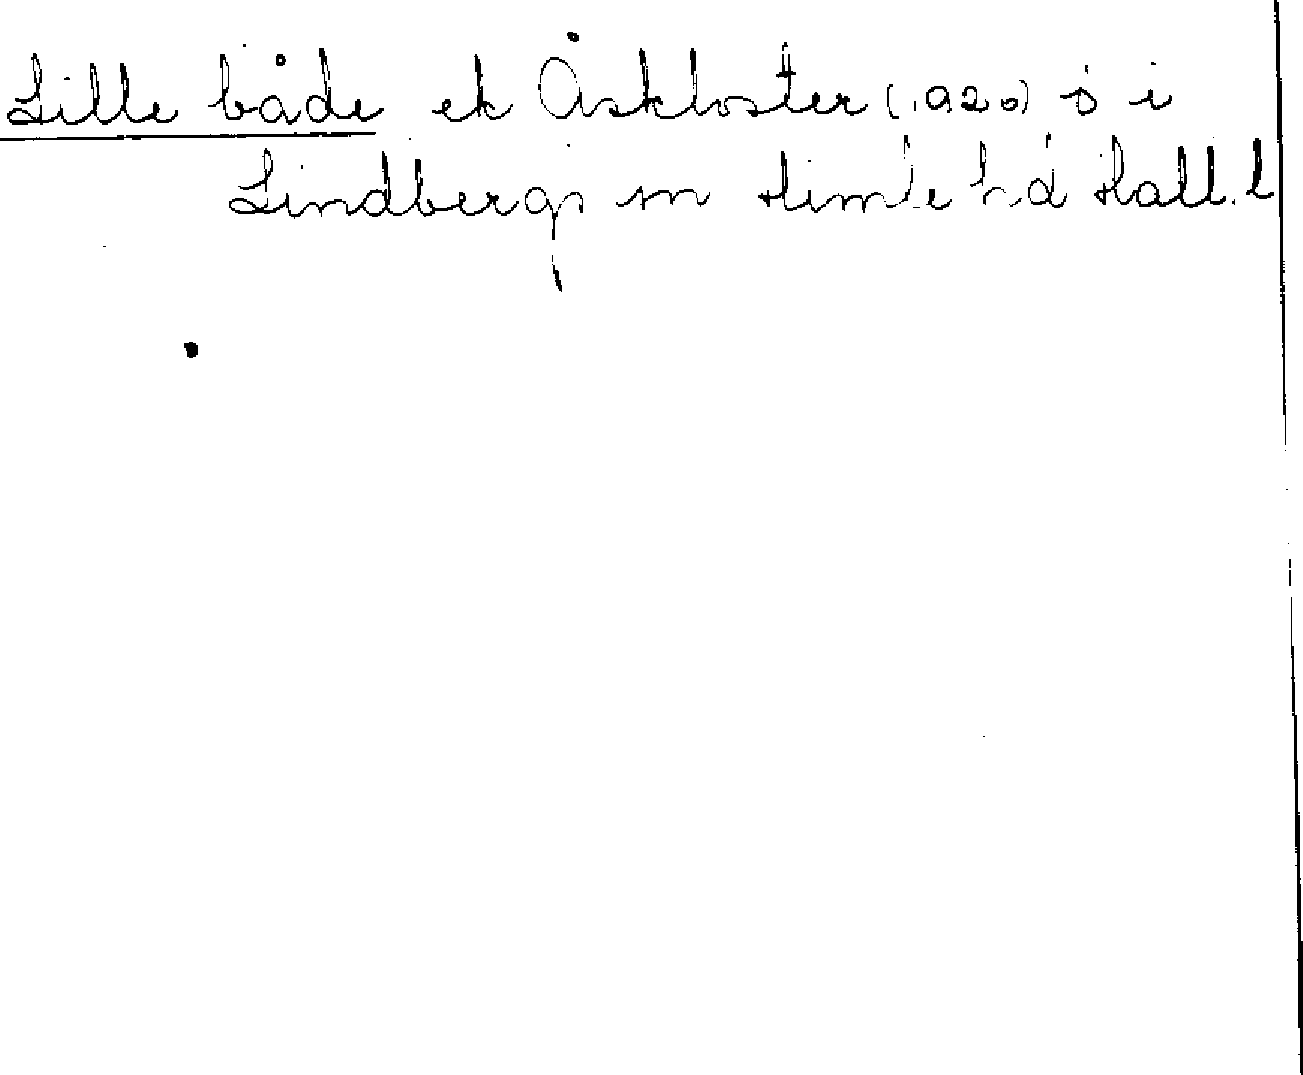 Lille både ek Åskloster (1920) s i
Lindbergs sn Himle hd Hall. l